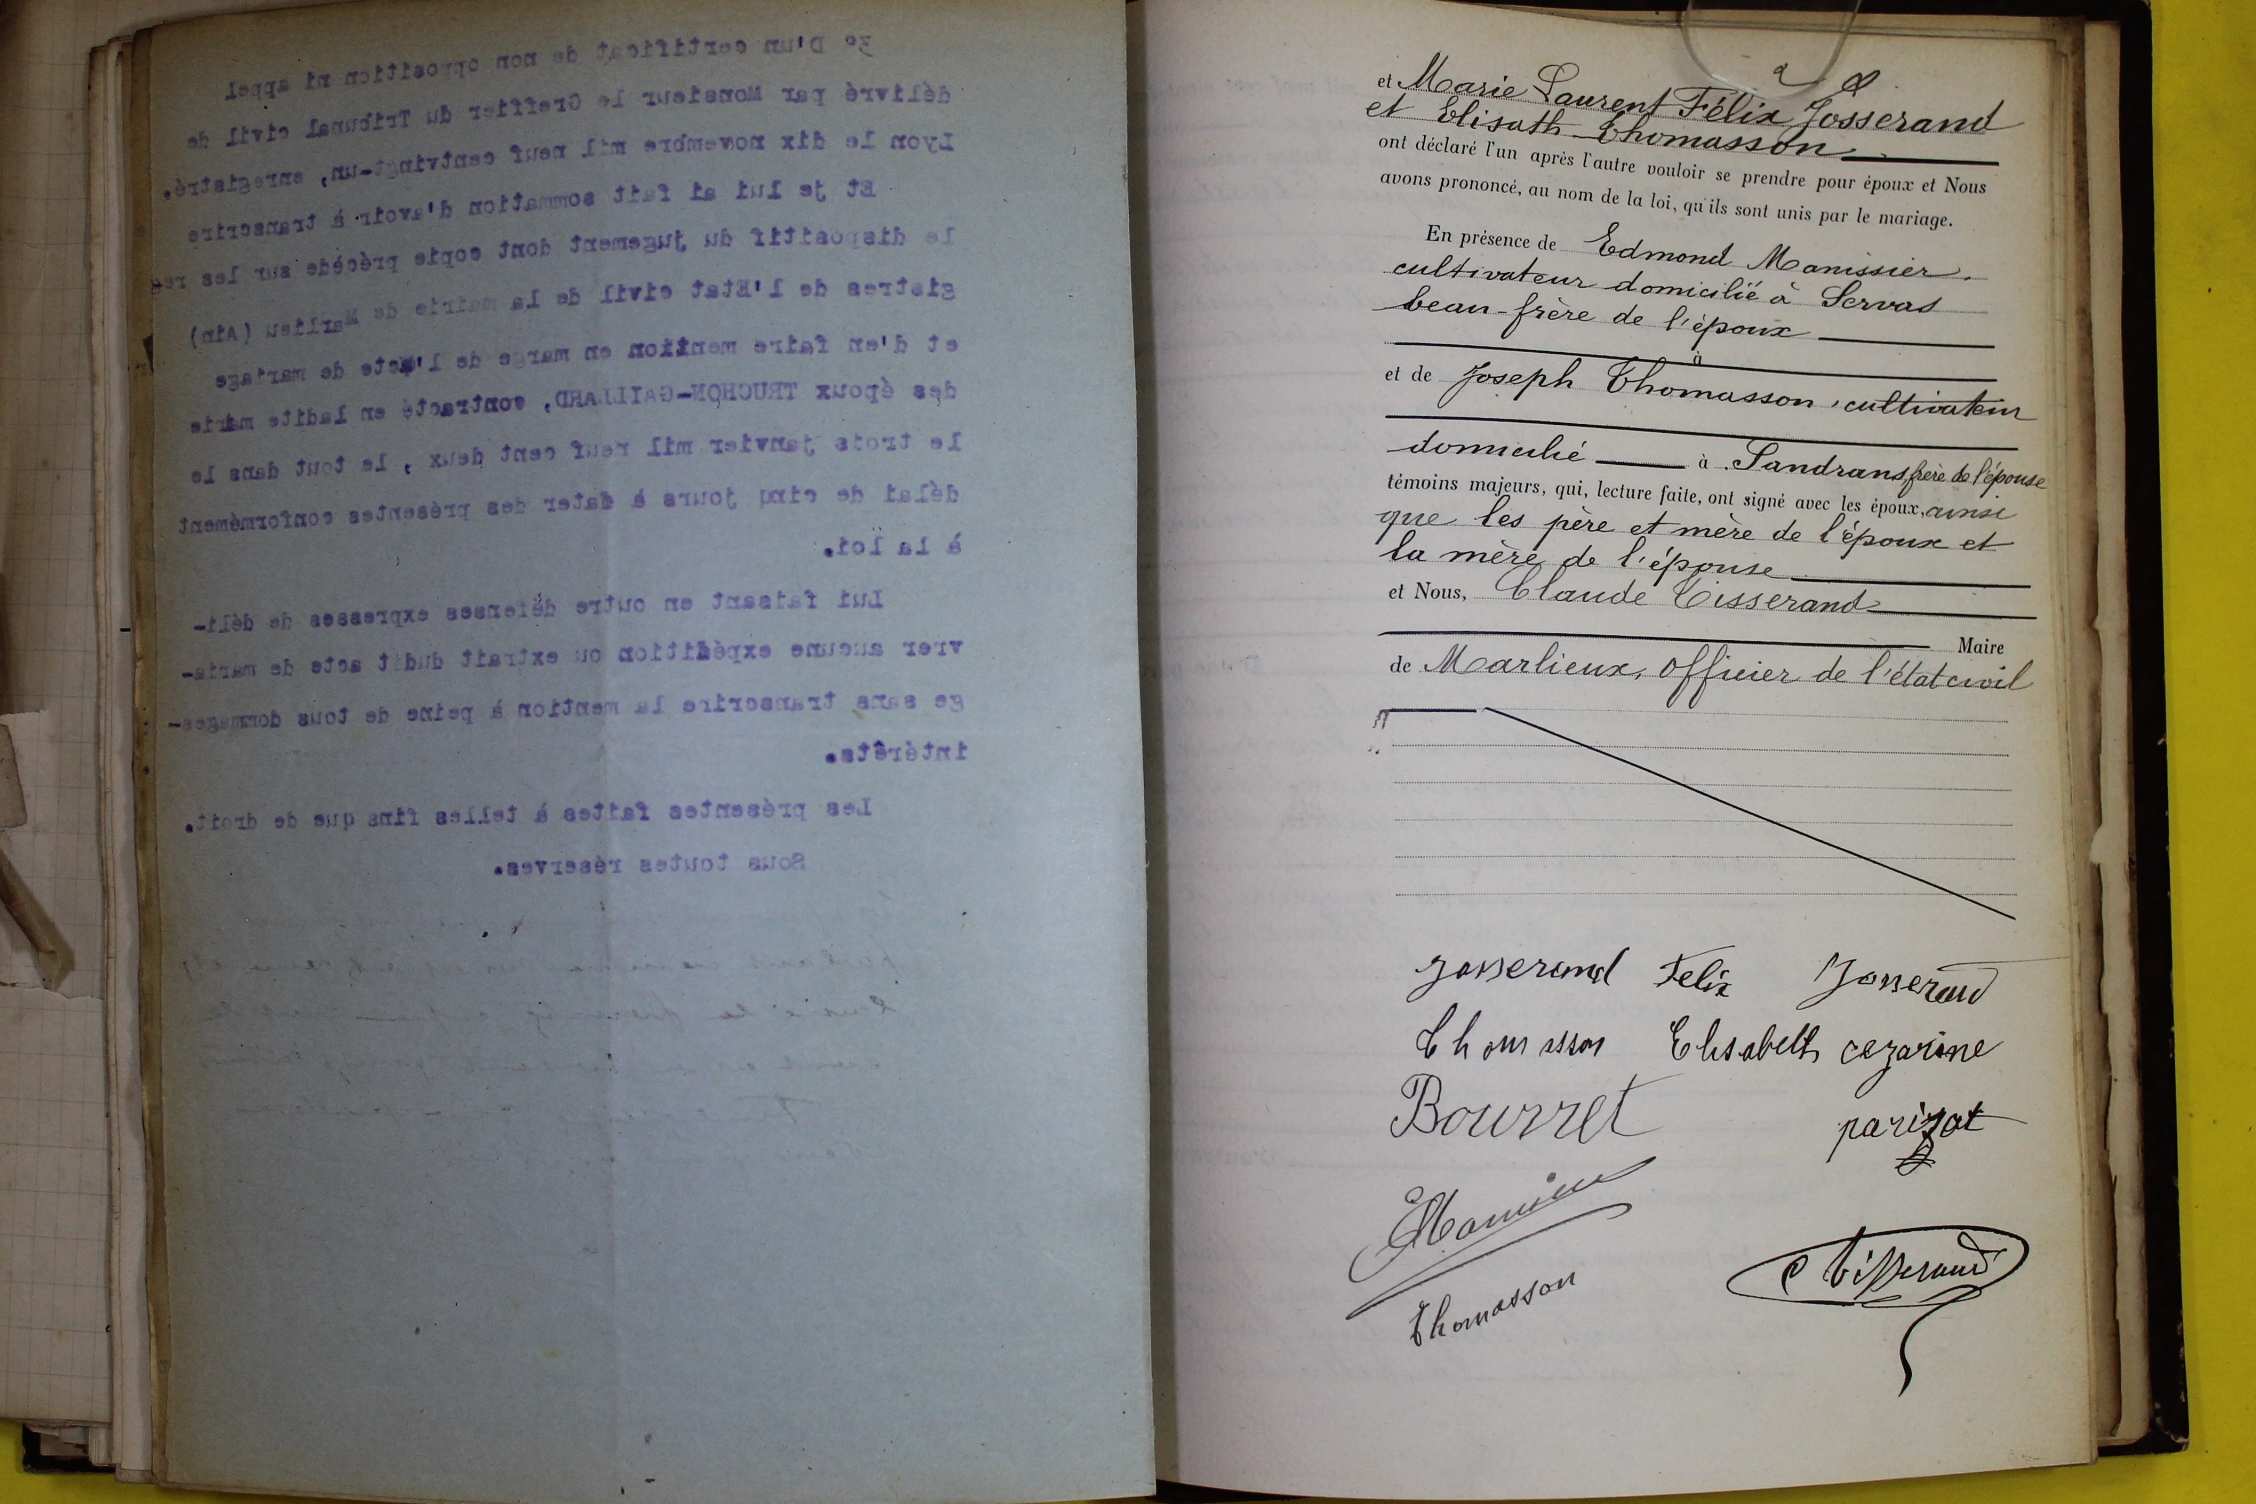 3° D'un certificat de non opposition ni appel
délivré par Monsieur le Greffier du Tribunal civil de
Lyon le dix novembre mil neuf centvingt-un, enregistré.
Et je lui ai fait sommation d'avoir à transcrire
le dispositif du jugement dont copie précède sur les re
gistres de l'Etat civil de la mairie de Marlieu (Ain)
et d'en faire mention en marge de l'acte de mariage
des époux TRUCHON-GAILLARD, contracté en ladite mairie
le trois janvier mil neuf cent deux, le tout dans le
délai de cinq jours à dater des présentes conformément
à la loi.
Lui faisant en outre défenses expresses de déli-
vrer aucune expédition ou extrait dudit acte de maria-
ge sans transcrire la mention à peine de tous dommages-
intérêts.
Les présentes faites à telles fins que de droit.
Sous toutes réserves.
et Marie Laurent Félix Josserand
et Elisath Thomasson
ont déclaré l'un après l'autre vouloir se prendre pour époux et Nous
avons prononcé, au nom de la loi, qu'ils sont unis par le mariage.
En présence de Edmond Manissier,
cultivateur domicilié à Servas
beau-frère de l'époux
à
et de Joseph Thomasson, cultivateur
domicilié à Sandrans, frère de l'épouse
témoins majeurs, qui, lecture faite, ont signé avec les époux, ainsi
que les père et mère de l'époux et
la mère de l'épouse
et Nous, Claude Tisserand
Maire
de Marlieux, Officier de l'état civil
Josserand Felix Josserand
Thomasson Elisabeth cezarine
Bourret parizot
EManissier
Thomasson C Tisserand